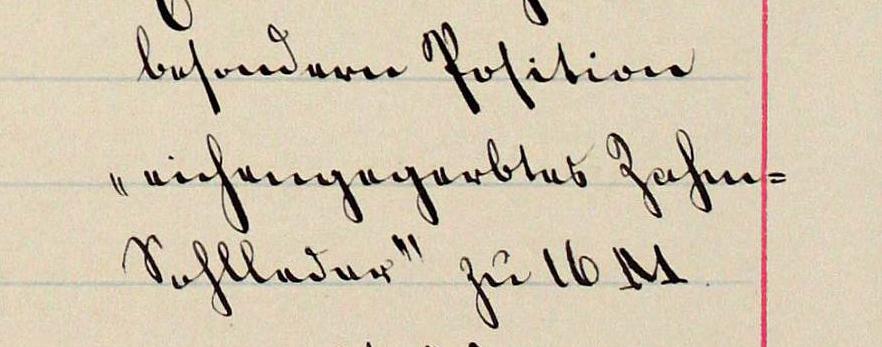 besondern Position
„eichengegerbtes Zahm-
Sohlleder" zu 16 M